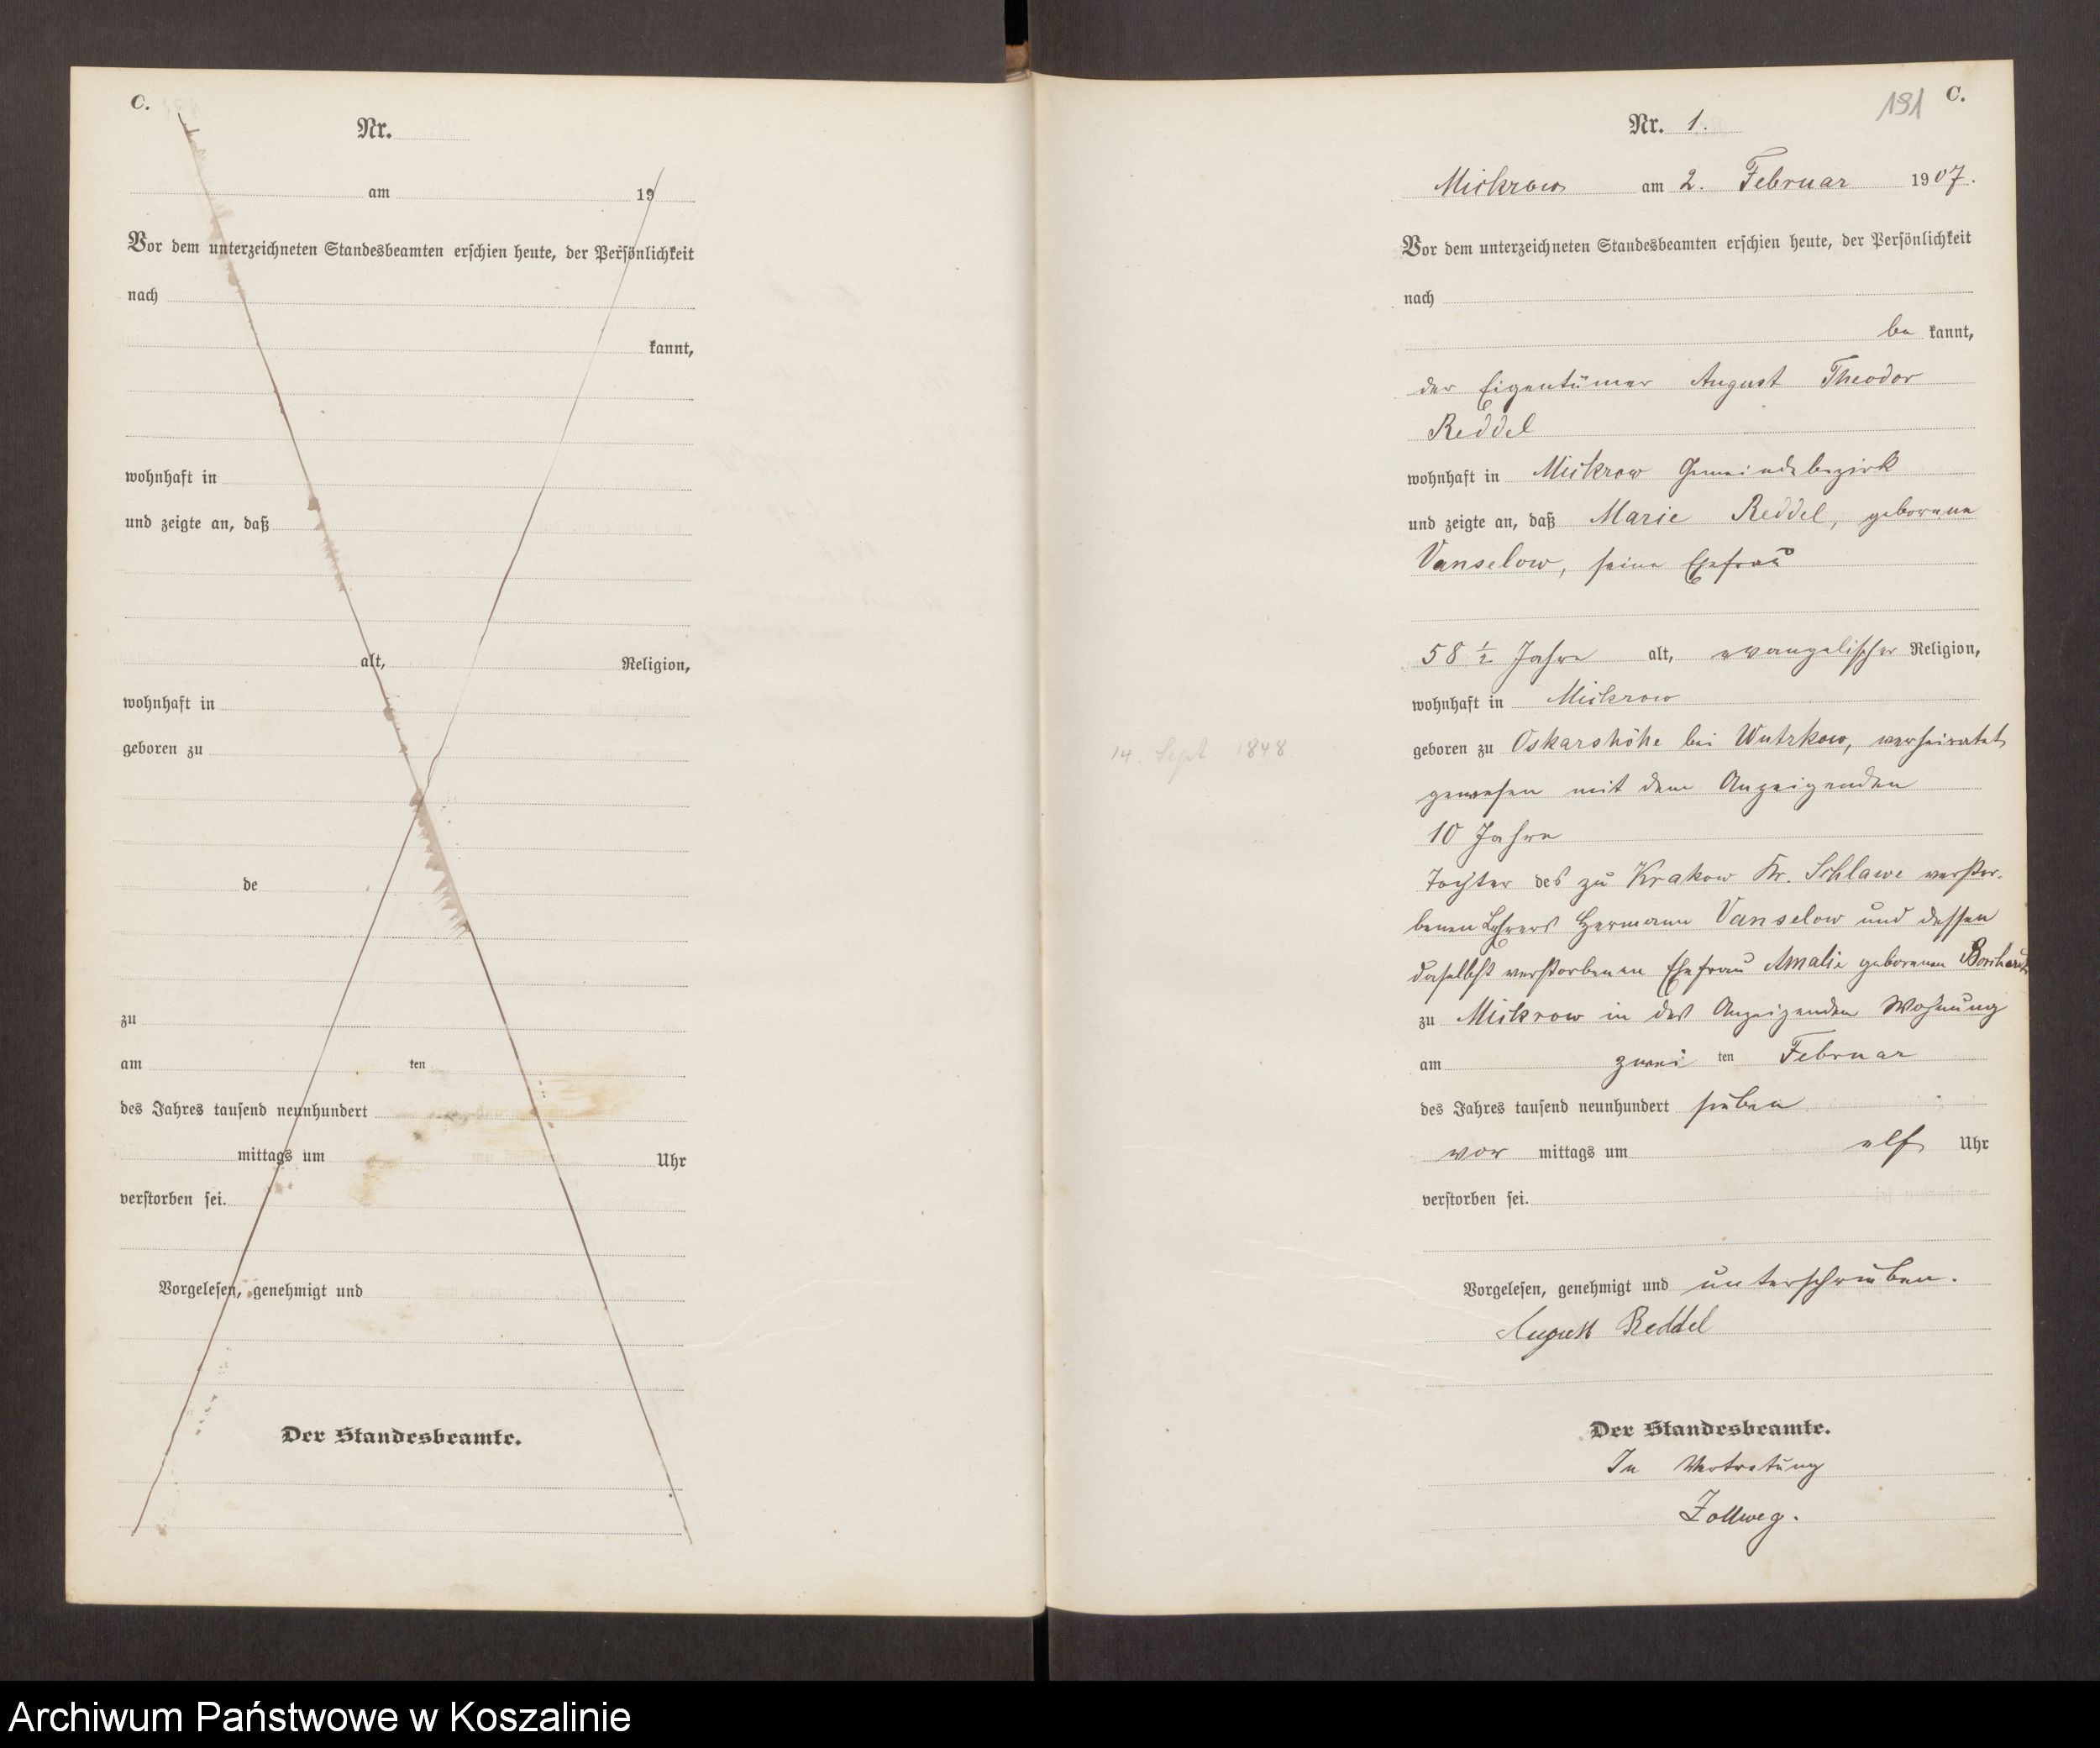 C.
Nr.
am 19
Vor dem unterzeichneten Standesbeamten erschien heute, der Persönlichkeit
nach
kannt,
wohnhaft in
und zeigte an, daß
alt, Religion,
wohnhaft in
geboren zu
de
zu
am ten
des Jahres tausend neunhundert
mittags um Uhr
verstorben sei.
Vorgelesen, genehmigt und
Der Standesbeamte.
191 C.
Nr. 1.
Mickrow am 2. Februar 1907.
Vor dem unterzeichneten Standesbeamten erschien heute, der Persönlichkeit
nach
be kannt,
der Eigentümer August Theodor
Reddel
wohnhaft in Mickrow Gemeindebezirk
und zeigte an, daß Marie Reddel, geborene
Vanselow, seine Ehefrau
58 1/2 Jahre alt, evangelischer Religion,
wohnhaft in Mickrow
14. Sept 1848
geboren zu Oskarshöhe bei Wutzkow, verheiratet
gewesen mit dem Anzeigenden
10 Jahre
Tochter des zu Krakow Kr. Schlawe verstor-
benen Lehrers Hermann Vanselow und dessen
daselbst verstorbenen Ehefrau Amalie geborenen
zu Mickrow in des Anzeigenden Wohnung
am zwei ten Februar
des Jahres tausend neunhundert sieben
vor mittags um elf Uhr
verstorben sei.
Vorgelesen, genehmigt und unterschrieben.
August Reddel
Der Standesbeamte.
In Vertretung
Zollweg.
Archiwum Państwowe w Koszalinie